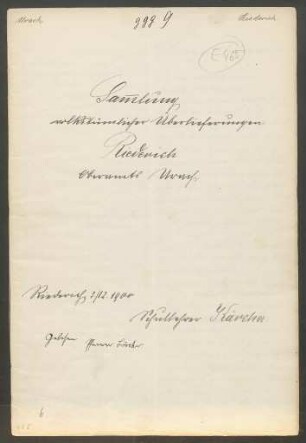 Urach 998 9 Riederich
E 465
Sammlung
volkstümlicher Überlieferungen
Riederich
Oberamts Urach.
Riederich, 2/12. 1900
Schullehrer
Gelesen Pfarrer
6